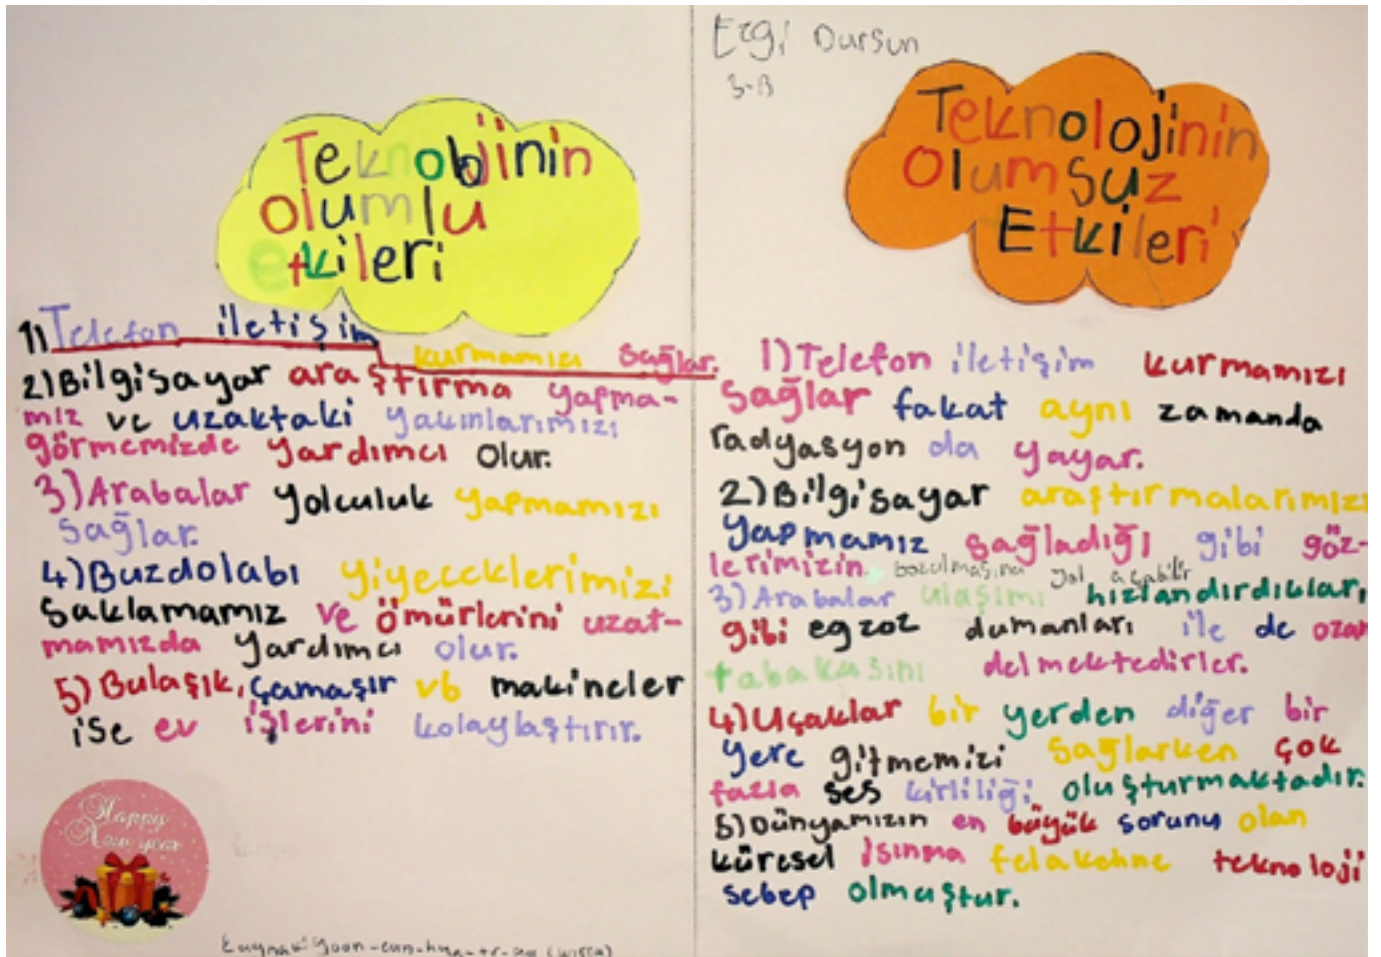 Teknolojinin
olumlu
etkileri
1) Telefon iletişim kurmamızı sağlar.
2) Bilgisayar araştırma yapma-
mız ve uzaktaki yakınlarımızı
görmemizde yardımcı olur.
3) Arabalar yolculuk yapmamızı
sağlar.
4) Buzdolabı yiyeceklerimizi
saklamamız ve ömürlerini uzat-
mamızda yardımcı olur.
5) Bulaşık, çamaşır vb makineler
ise ev işlerini kolaylaştırır.
Happy
New year
Ezgi Dursun
3-B
Teknolojinin
Olumsuz
Etkileri
1) Telefon iletişim kurmamızı
sağlar fakat aynı zamanda
radyasyon da yayar.
2) Bilgisayar araştırmalarımızı
yapmamız sağladığı gibi göz-
lerimizin bozulmasına yol açabilir
3) Arabalar ulaşımı hızlandırdıkları
gibi egzoz dumanları ile de ozon
tabakasını delmektedirler.
4) Uçaklar bir yerden diğer bir
yere gitmemizi sağlarken çok
fazla ses kirliliği oluşturmaktadır.
5) Dünyamızın en büyük sorunu olan
küresel ısınma teknoloji
sebep olmuştur.